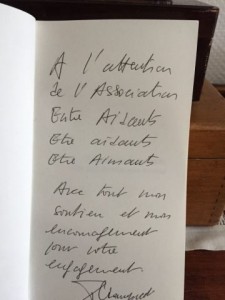 A l'attention
de l'Association
Entre Aidants
Etre aidants
Etre Aimants
Avec tout mon
soutien et mon
encouragement
pour votre
engagement.